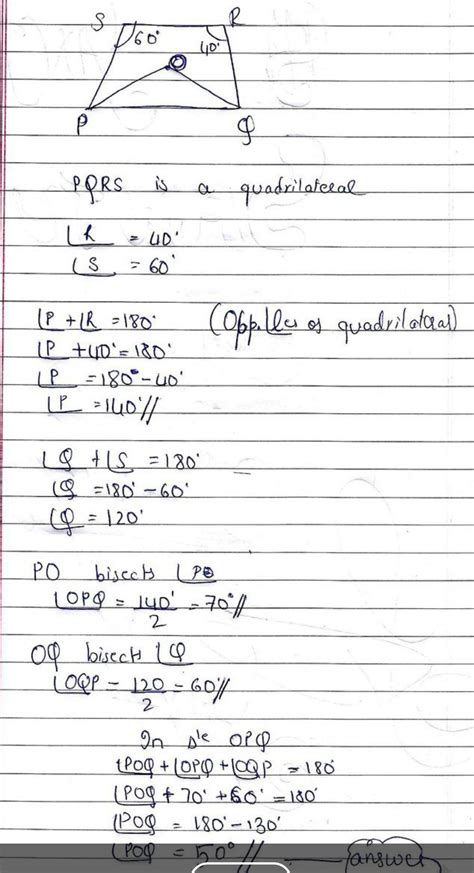 S R
60° 40°
O
P Q
PQRS is a quadrilateral
∠R = 40°
∠S = 60°
∠P + ∠R = 180° (Opp. ∠les of quadrilateral)
∠P + 40° = 180°
∠P = 180° - 40°
∠P = 140° //
∠Q + ∠S = 180°
∠Q = 180° - 60°
∠Q = 120°
PO bisects ∠P
∠OPQ = 140°/2 = 70° //
OQ bisects ∠Q
∠OQP = 120/2 = 60° //
In Δle OPQ
∠POQ + ∠OPQ + ∠OQP = 180°
∠POQ + 70° + 60° = 180°
∠POQ = 180° - 130°
∠POQ = 50° // answer